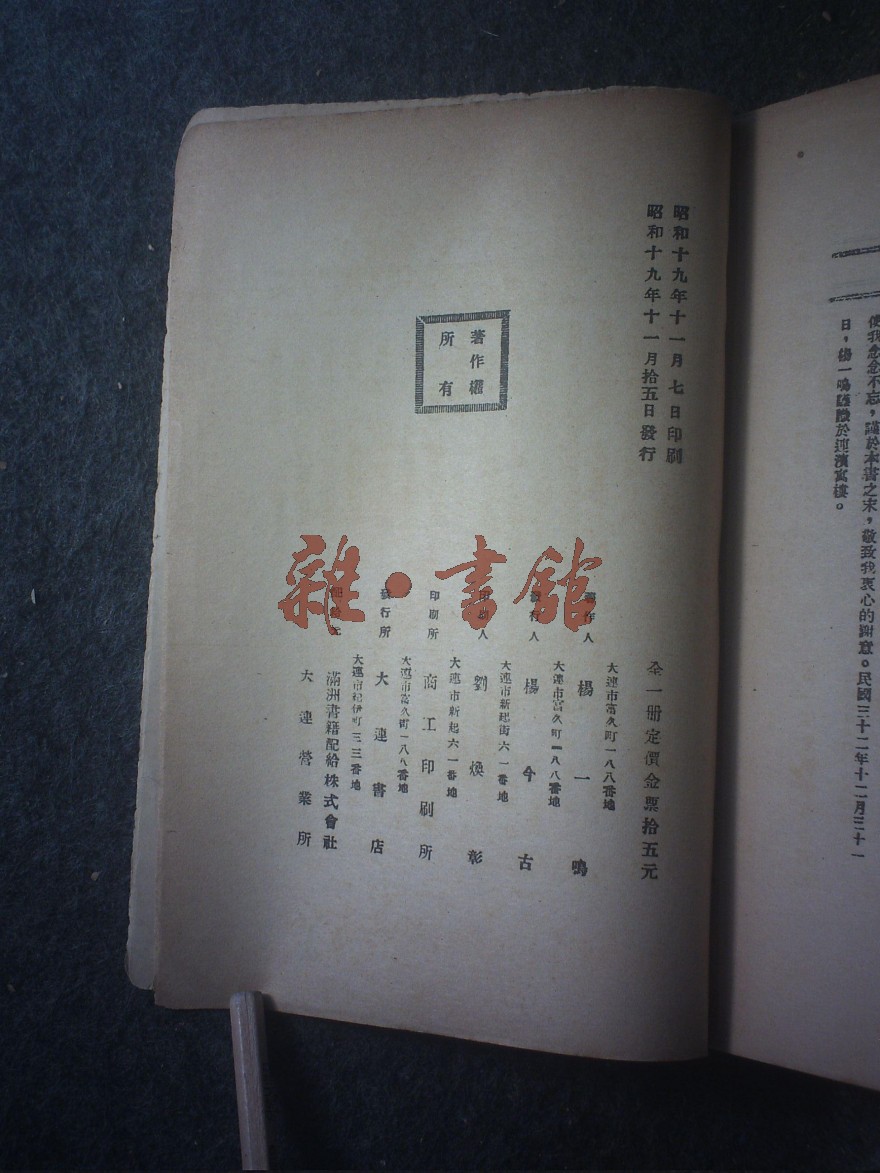 使我念念不忘，謹於本書之末，敬致我衷心的謝意。民國三十二年十二月三十一
日，楊一鳴謹識於連濱寓樓。
昭和十九年十一月七日印刷
昭和十九年十一月拾五日發行
著作權
所有
全一册定價金票拾五元
大連市富久町一八八番地
著作人 楊一鳴
大連市富久町一八八番地
發行人 楊今古
大連市新起街六一番地
印刷人 劉煥彰
大連市新起六一番地
印刷所 商工印刷所
大連市富久町一八八番地
發行所 大連書店
大連市紀伊町三三番地
滿洲書籍配給株式會社
大連營業所
雜·書館